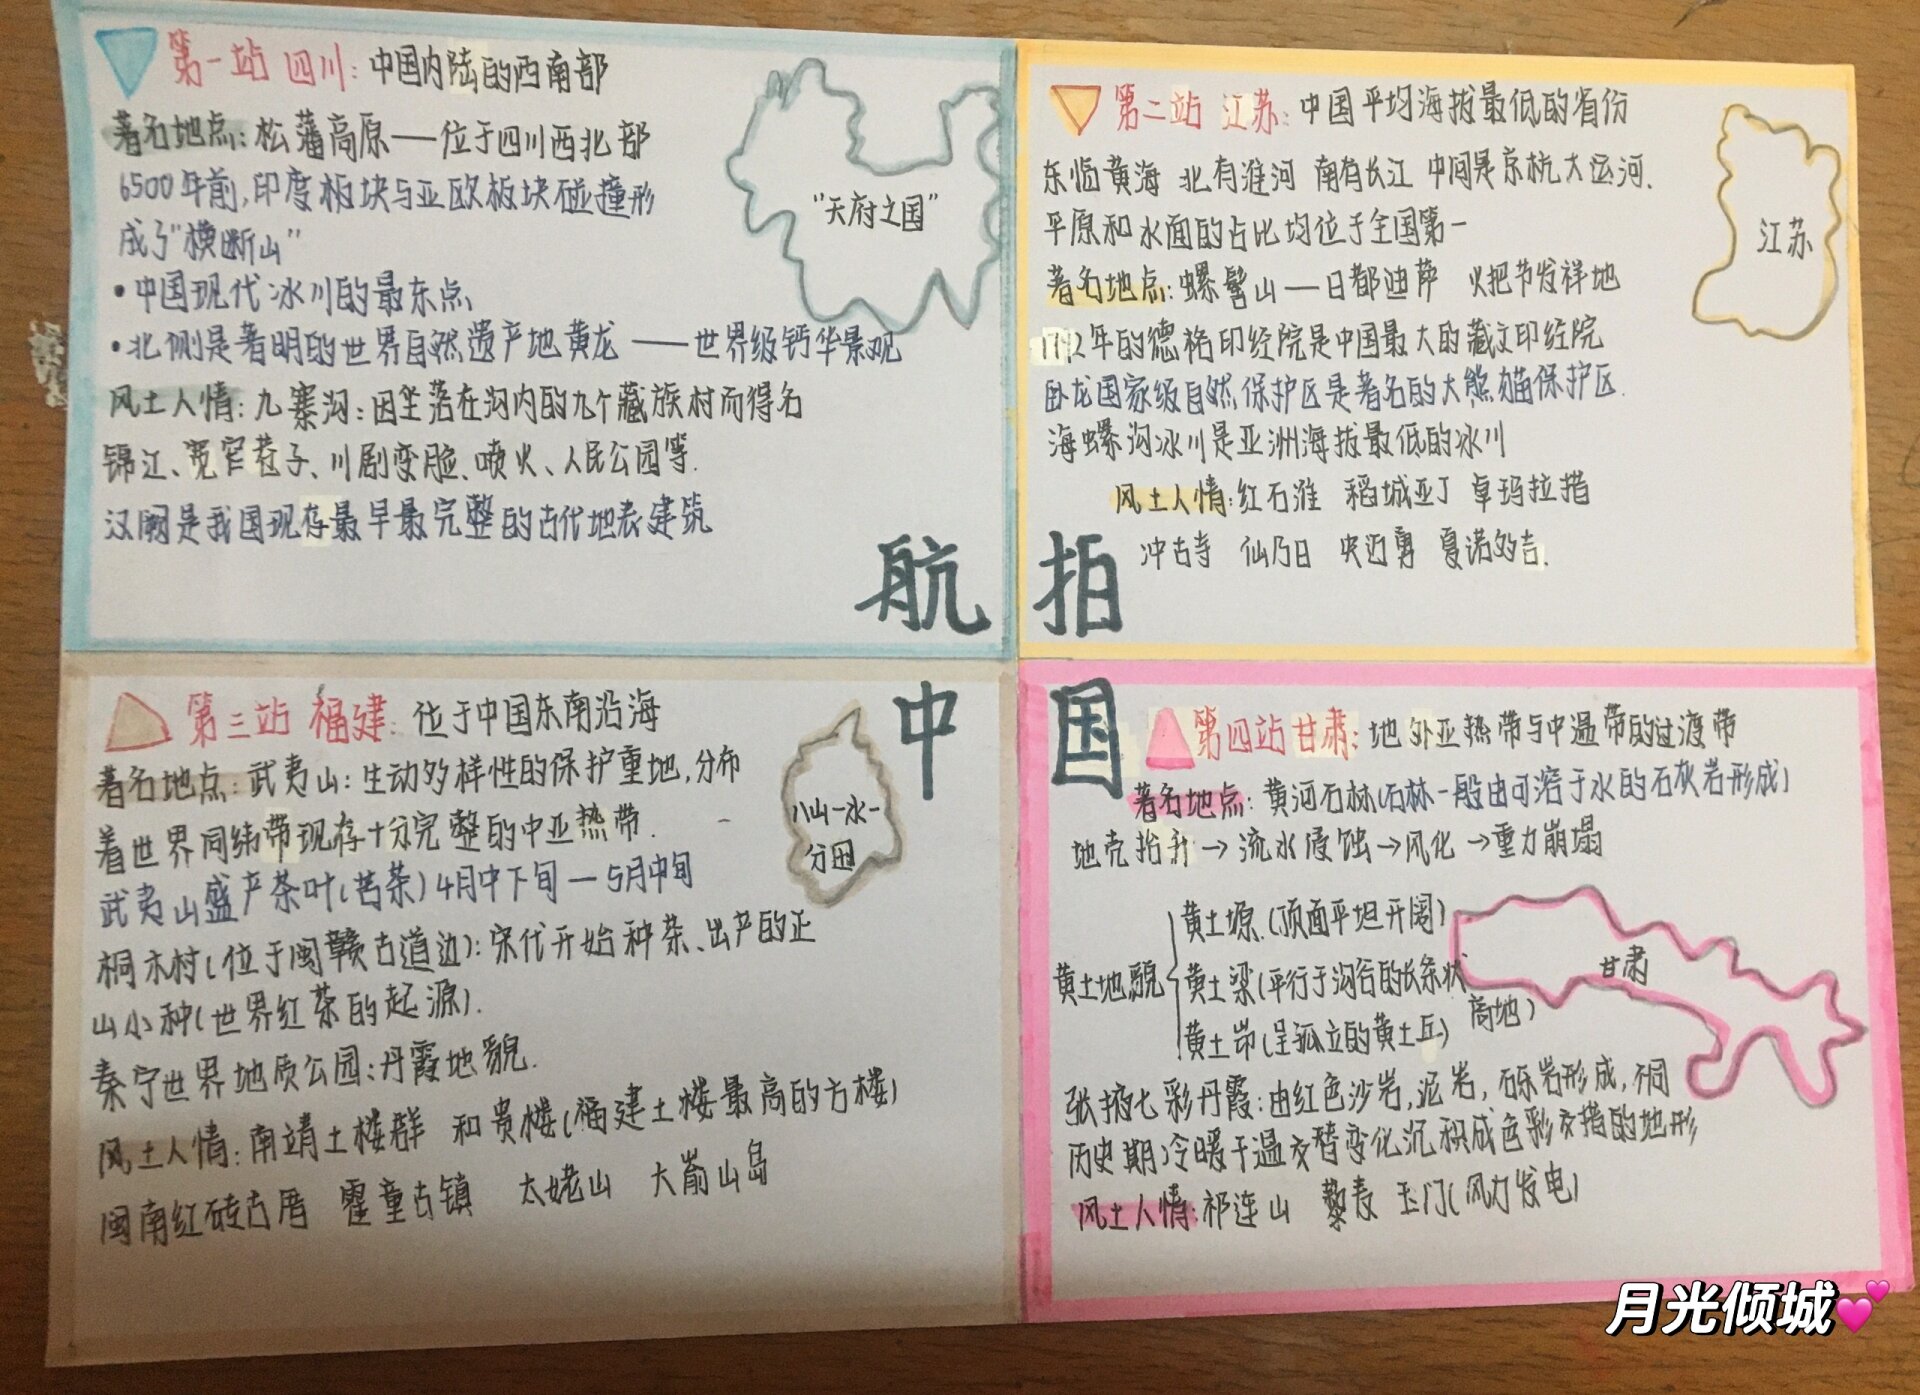 第一站 四川:中国内陆的西南部
著名地点:松藩高原——位于四川西北部
6500年前,印度板块与亚欧板块碰撞形
成了"横断山"
•中国现代冰川的最东点
•北侧是著明的世界自然遗产地黄龙——世界级钙华景观
风土人情:九寨沟:因坐落在沟内的九个藏族村而得名
锦江、宽窄巷子、川剧变脸、喷火、人民公园等.
汉阙是我国现存最早最完整的古代地表建筑
"天府之国"
航
第二站 江苏:中国平均海拔最低的省份
东临黄海 北有淮河 南有长江 中间是京杭大运河.
平原和水面的占比均位于全国第一
著名地点:螺髻山—日都迪萨 火把节发祥地
年的德格印经院是中国最大的藏文印经院
卧龙国家级自然保护区是著名的大熊猫保护区.
海螺沟冰川是亚洲海拔最低的冰川
风土人情:红石滩 稻城亚丁 卓玛拉措
冲古寺 仙乃日 央迈勇 夏诺多吉.
江苏
拍
第三站 福建:位于中国东南沿海
著名地点:武夷山:生动多样性的保护重地,分布
着世界同纬带现存十分完整的中亚热带.
武夷山盛产茶叶(苦茶)4月中下旬—5月中旬
桐木村(位于闽赣古道边):宋代开始种茶、出产的正
山小种(世界红茶的起源).
泰宁世界地质公园:丹霞地貌.
风土人情:南靖土楼群 和贵楼(福建土楼最高的方楼)
闽南红砖古厝 霍童古镇 太姥山 大嵛山岛
八山一水一
分田
中
国
第四站甘肃:地外亚热带与中温带的过渡带
著名地点:黄河石林(石林一般由可溶于水的石灰岩形成)
地壳抬升→流水侵蚀→风化→重力崩塌
黄土地貌
黄土塬.(顶面平坦开阔)
黄土梁(平行于沟谷的长条状
高地)
黄土峁(呈孤立的黄土丘)
甘肃
张掖七彩丹霞:由红色沙岩,泥岩,砾岩形成,不同
历史期冷暖干温交替变化沉积成色彩交措的地形
风土人情:祁连山 藜麦 玉门(风力发电)
月光倾城💕